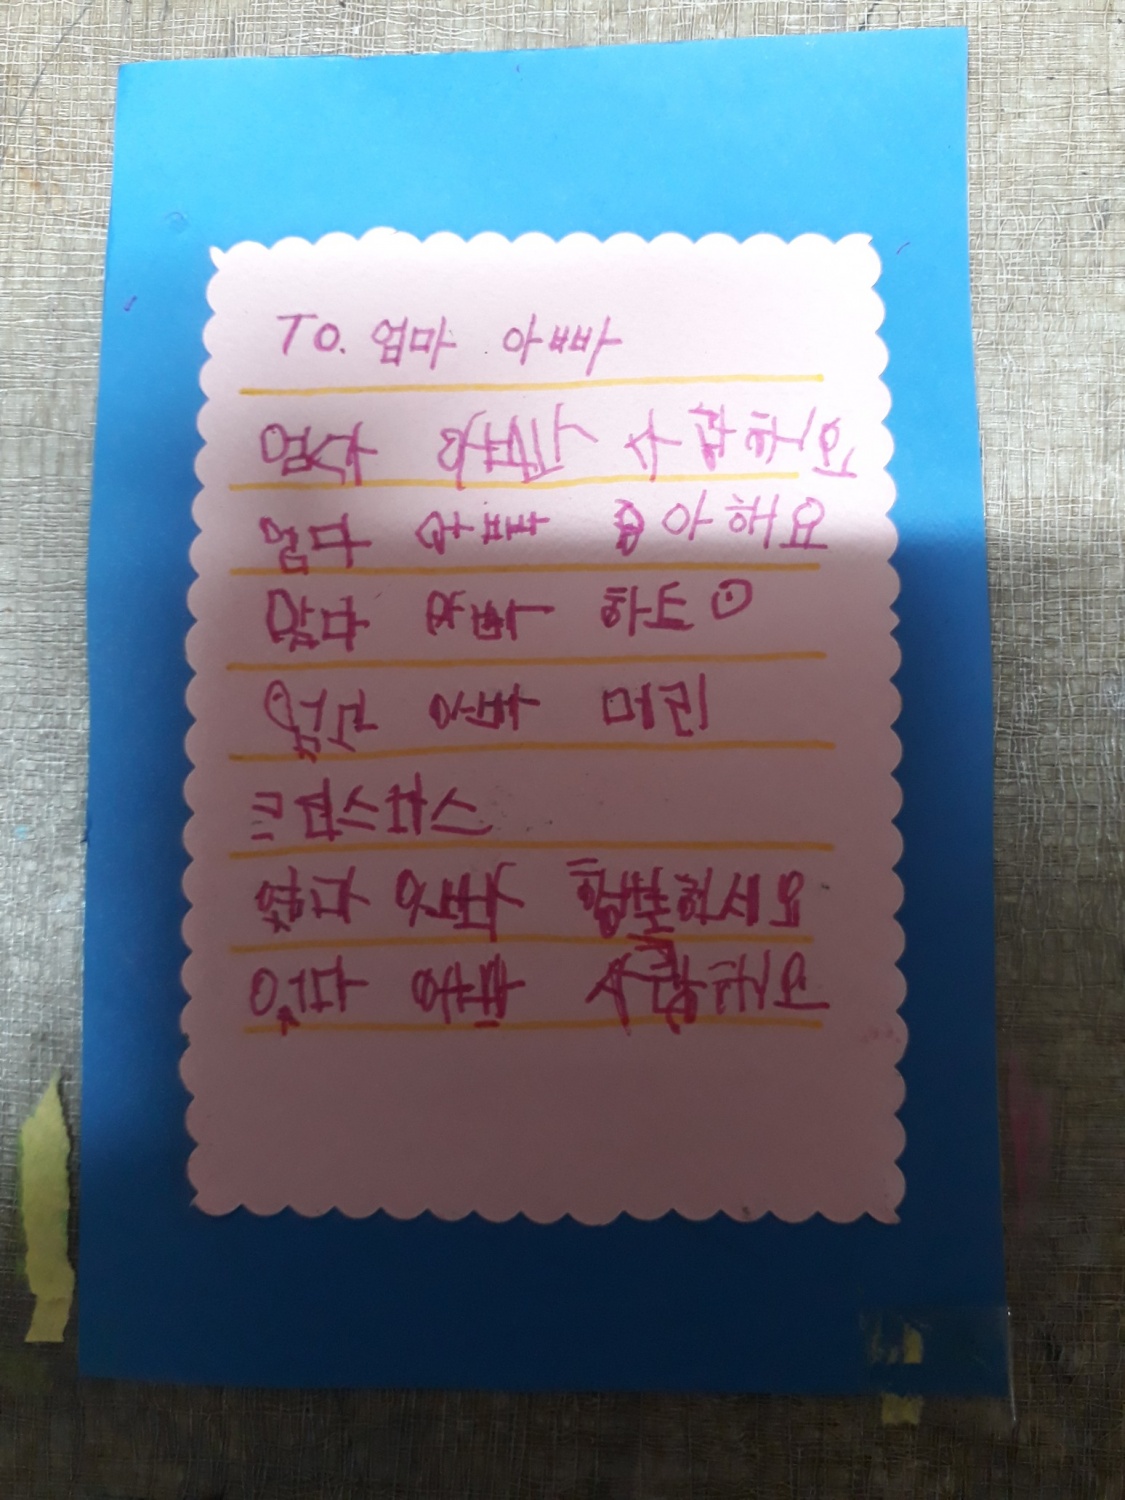 To. 엄마 아빠
엄마 아빠 사랑해요
엄마 아빠 좋아해요
엄마 아빠 하트
엄마 아빠 머리
크리스마스
엄마 아빠 행복하세요
엄마 아빠 사랑해요